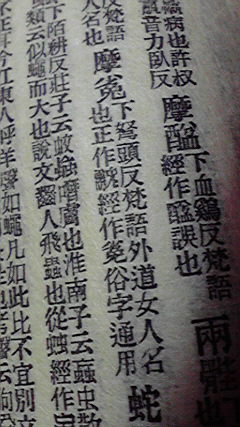 病也許叔
音力臥反
摩醯
下血鷄反梵語
經作醯誤也
兩
反梵語
人名也
摩㝹
下弩頭反梵語外道女人名
也正作㝹經作㝹俗字通用
蛇
下陌耕反莊子云蚊蝱噆膚也淮南子云蝱
類云似蠅而大也說文齧人飛蟲也從䖵經作
今江東人呼羊聲如蠅凡如此比不宜別立